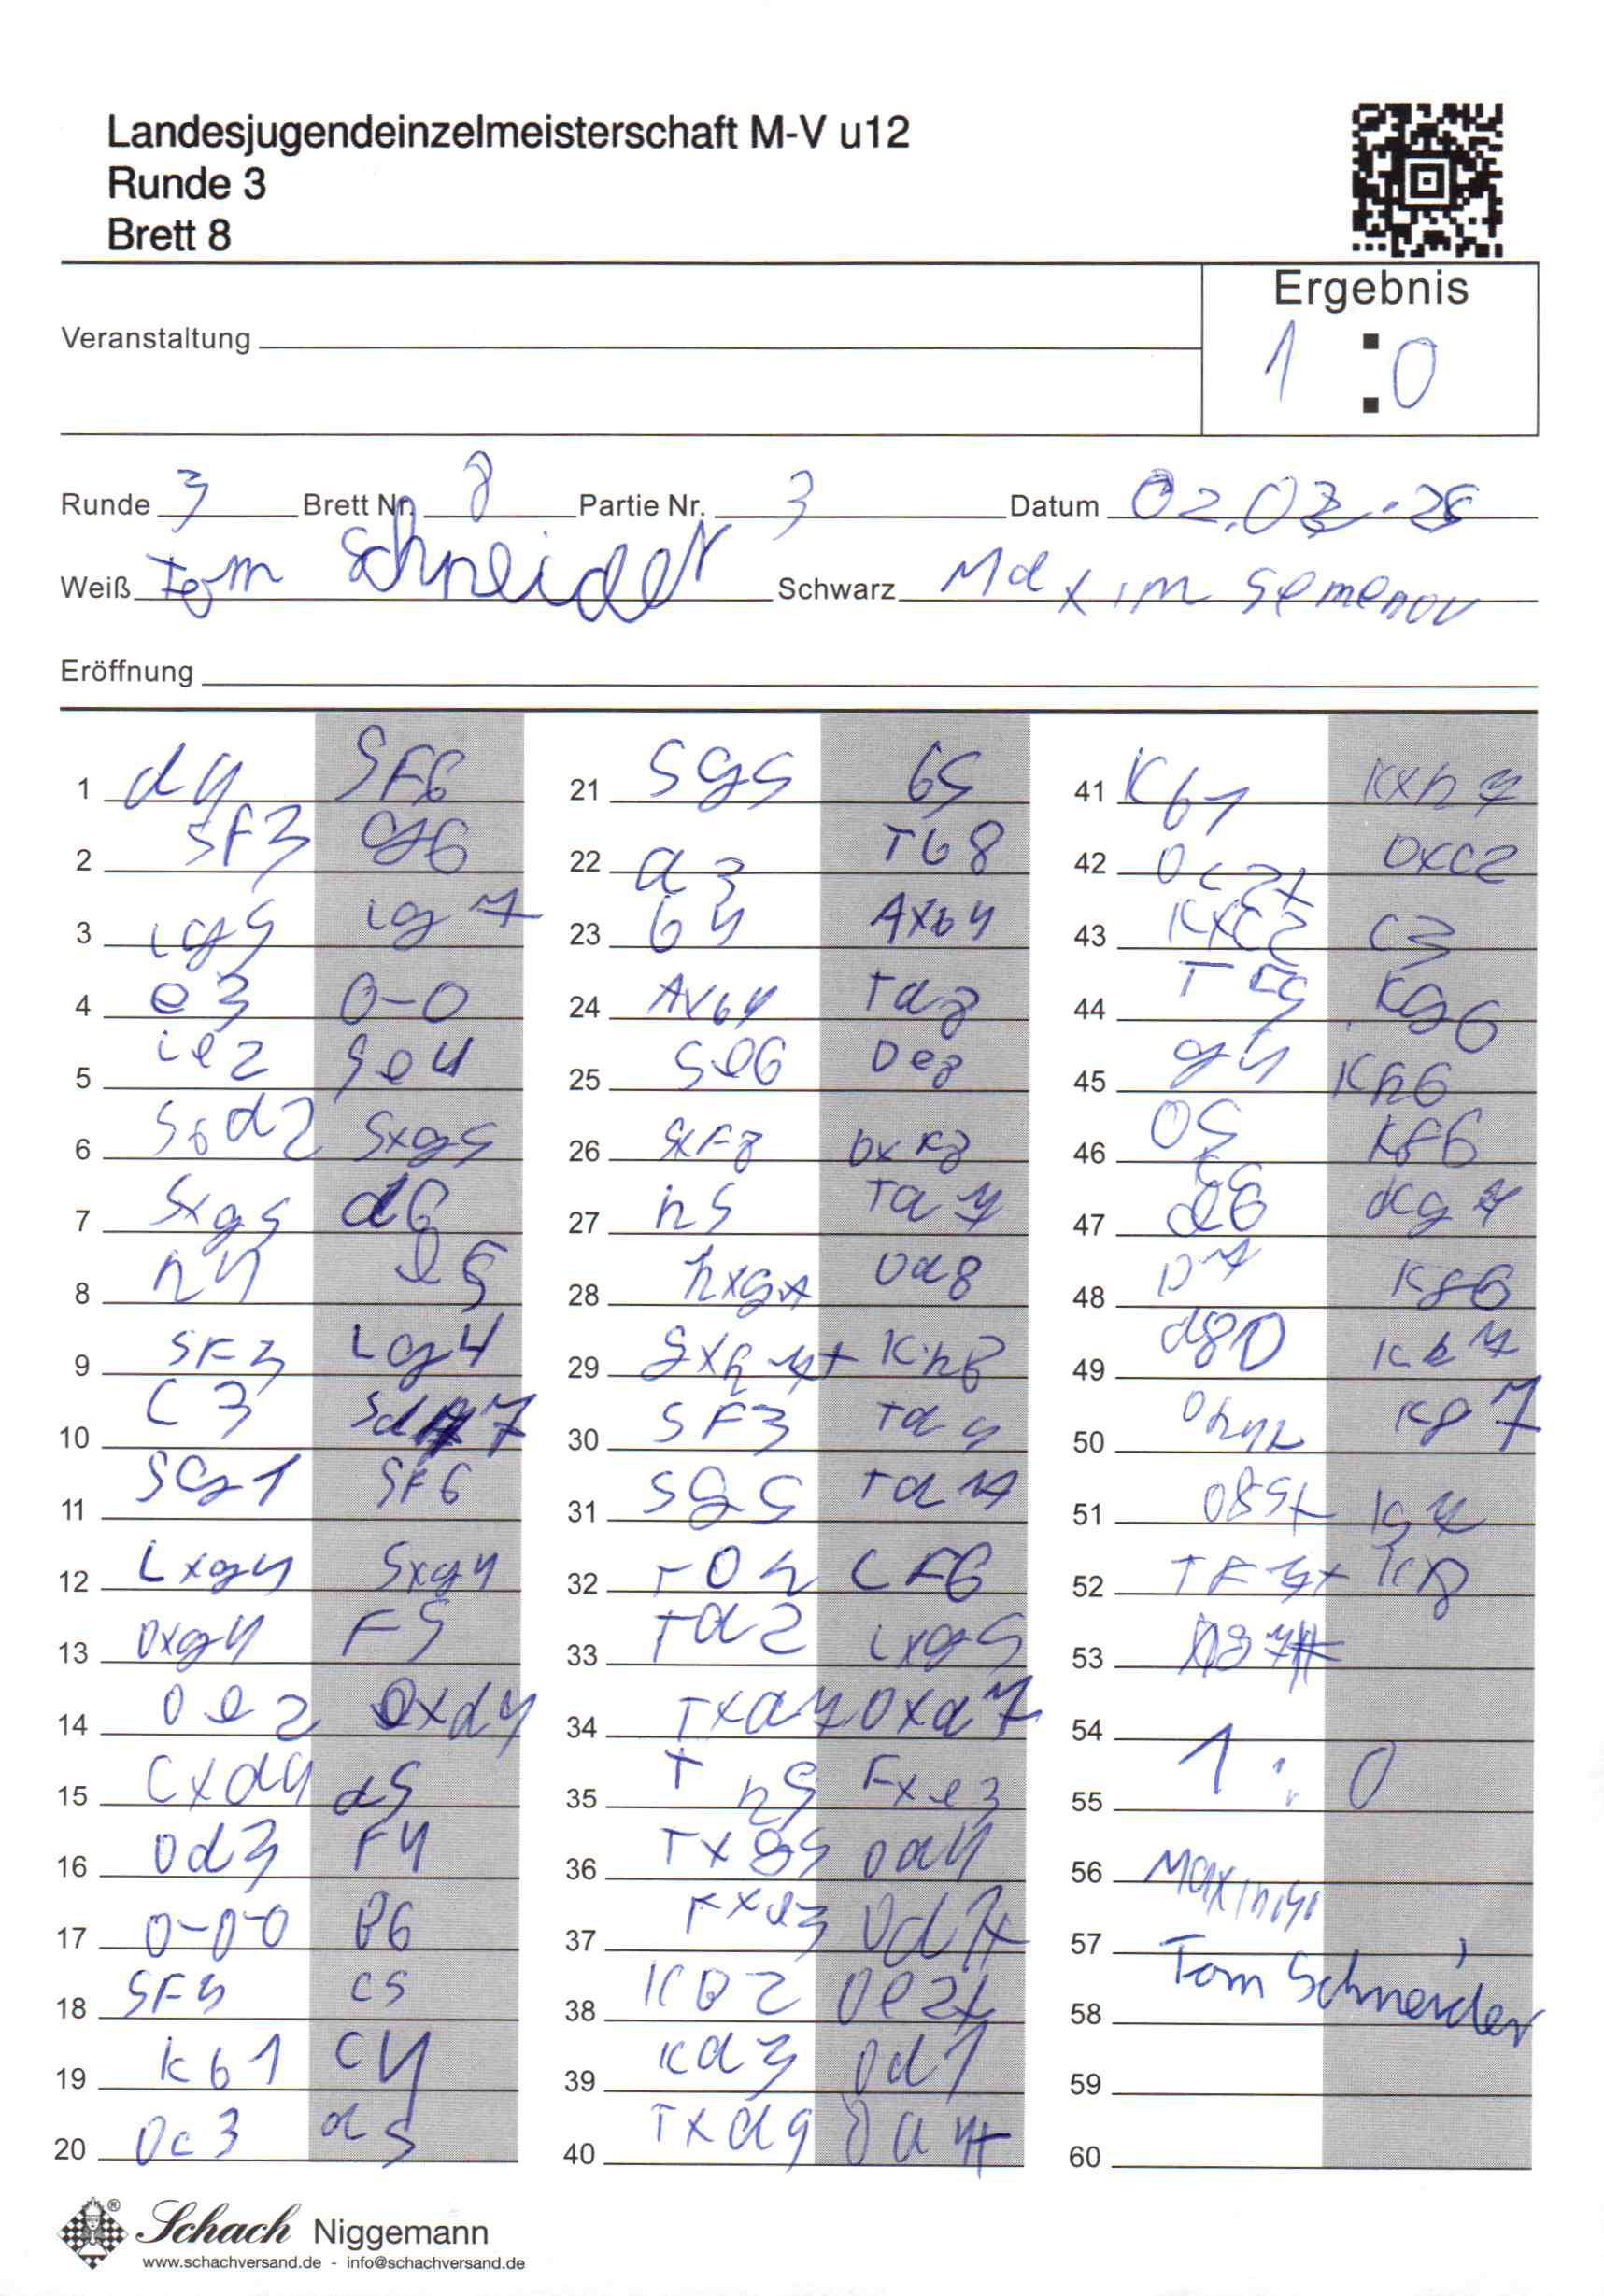 Landesjugendeinzelmeisterschaft M-V u12
Runde 3
Brett 8
Ergebnis
1 : 0
Veranstaltung
Runde 3 Brett Nr. 8 Partie Nr. 3 Datum
Weiß Tom Schneider Schwarz Maxim Semenov
Eröffnung
1 d4 SF6
2 SF3 g6
3 ig5 ig7
4 e3 0-0
5 ie2 Se4
6 Sbd2 Sxg5
7 Sxg5 d6
8 h4 e5
9 SF3 Lg4
10 C3 Sd7
11 Sg1 SF6
12 Lxg4 Sxg4
13 Dxg4 F5
14 De2 exd4
15 Cxd4 d5
16 Dd3 F4
17 0-0-0 b6
18 SF3 c5
19 Kb1 c4
20 Dc3 a5
21 Sg5 b5
22 a3 Tb8
23 b4 Axb4
24 Axb4 Ta8
25 Se6 De8
26 SxF8 DxF8
27 h5 Ta4
28 hxg+ Da8
29 gxh7+ Kh8
30 SF3 Ta4
31 Sg5 Ta7
32 LF6
33 Td2 ixg5
34 Txa7 Dxa7
35 Th5 Fxe3
36 Txg5 Da4
37 Fxe3 Dd1+
38 Kb2 De2+
39 Kd3 Dd1
40 Txd5 Da4+
41 Kb1 Kxh7
42 Dc2+ Dxc2
43 Kxc2 C3
44 TF5 Kg6
45 g4 Kh6
46 KF6
47 d6
48 Kg6
49 d8D Kh7
50 Kg7
51 Dg5+
52 TF7+ K8
53
54
55 1 : 0
56
57 Tom Schneider
58
59
60
Schach Niggemann
www.schachversand.de - info@schachversand.de